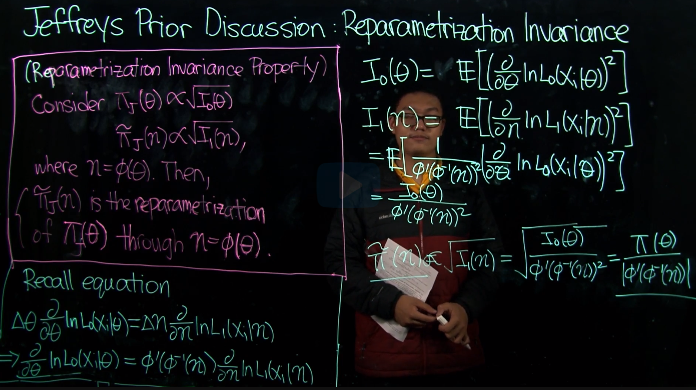 Jeffreys Prior Discussion: Reparametrization Invariance
(Reparametrization Invariance Property)
Consider π_J(θ) ∝ √I₀(θ)
π̃_J(n) ∝ √I₁(n),
where n=φ(θ). Then,
π̃_J(n) is the reparametrization
of π_J(θ) through n=φ(θ).
Recall equation
Δθ ∂/∂θ ln L₀(x|θ) = Δn ∂/∂n ln L₁(x|n)
⇒ ∂/∂θ ln L₀(x|θ) = φ'(φ⁻¹(n)) ∂/∂n ln L₁(x|n)
I₀(θ) = E[(∂/∂θ ln L₀(x|θ))²]
I₁(n) = E[(∂/∂n ln L₁(x|n))²]
= E[1/φ'(φ⁻¹(n))² (∂/∂θ ln L₀(x|θ))²]
= I₀(θ)/φ'(φ⁻¹(n))²
π̃(n) ∝ √I₁(n) = √(I₀(θ)/φ'(φ⁻¹(n))²) = π(θ)/|φ'(φ⁻¹(n))|